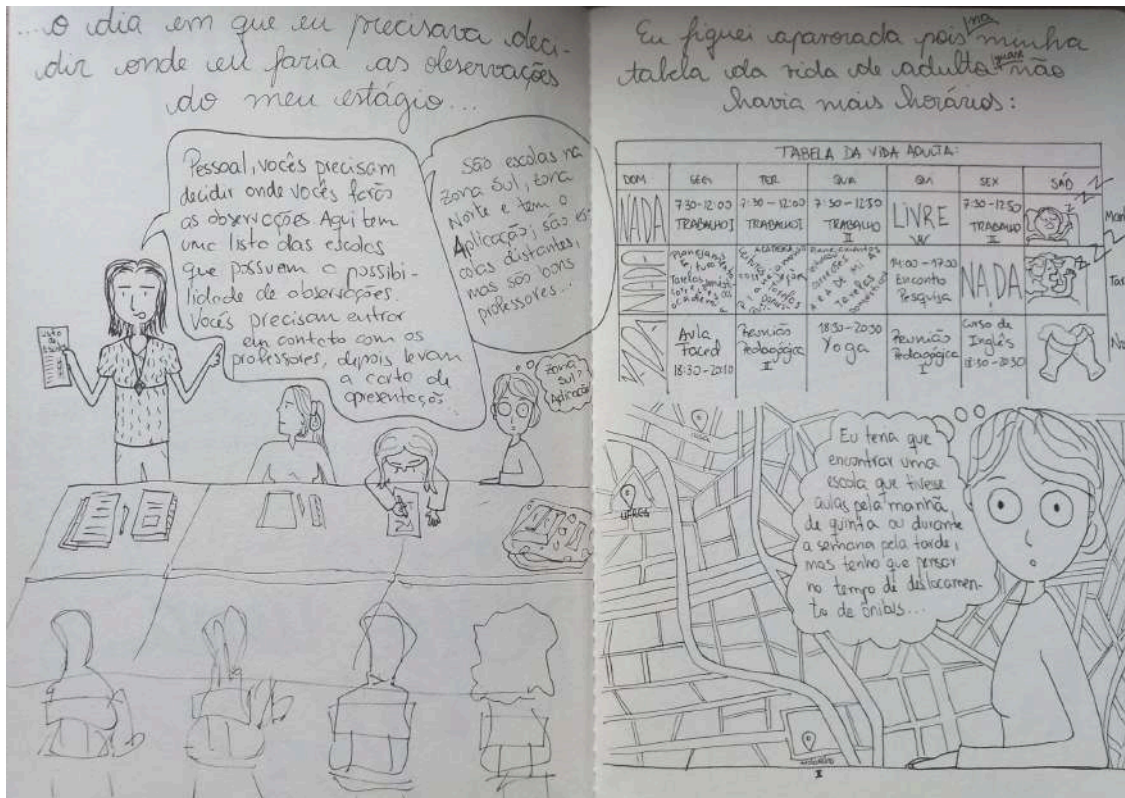 ...o dia em que eu precisava deci-
dir onde eu faria as observações
do meu estágio...
Pessoal, vocês precisam
decidir onde vocês farão
as observações. Aqui tem
uma lista das escolas
que possuem a possibi-
lidade de observações.
Vocês precisam entrar
em contato com os
professores, depois levam
a carta de
apresentação...
São escolas na
Zona Sul, zona
Norte e tem o
Aplicação, são es-
colas distantes,
mas são bons
professores...
Zona
Sul?
Aplicação
Eu fiquei apavorada pois na minha
tabela da vida de adulta quase não
havia mais horários:
TABELA DA VIDA ADULTA:
DOM SEG TER QUA QUI SEX SÁB
NADA
7:30-12:00
TRABALHO I
7:30-12:00
TRABALHO I
7:30-12:50
TRABALHO
II
LIVRE
7:30-12:50
TRABALHO
II
Manh
NADA
14:00-17:00
Encontro
Pesquisa
NADA
Tar
NADA
Aula
Faced
18:30-20:10
Reunião
Pedagógica
II
18:30-20:30
Yoga
Reunião
Pedagógica
I
Curso de
Inglês
18:30-20:30
No
Eu teria que
encontrar uma
escola que tivesse
aulas pela manhã
de quinta ou durante
a semana pela tarde,
mas tenho que pensar
no tempo de deslocamen-
to de ônibus...
UFRGS